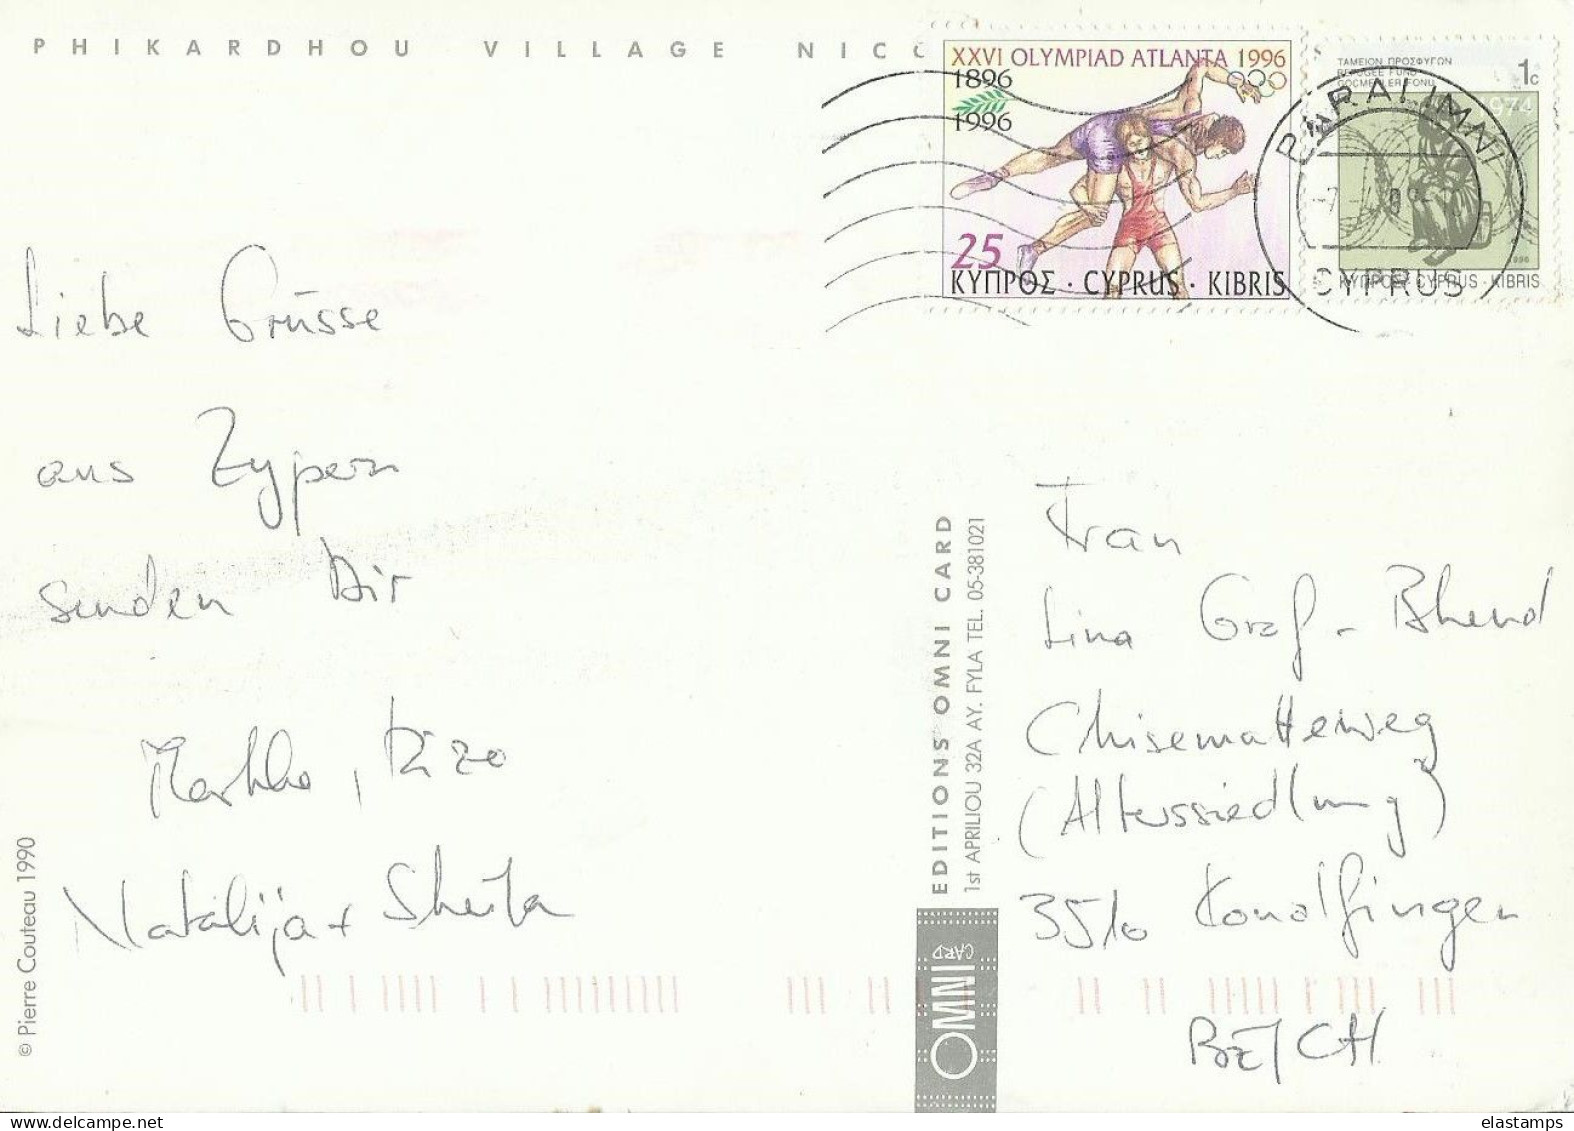 PHIKARDHOU VILLAGE NICO
XXVI OLYMPIAD ATLANTA 1996
1896
1996
25
ΚΥΠΡΟΣ · CYPRUS · KIBRIS
ΤΑΜΕΙΟΝ ΠΡΟΣΦΥΓΩΝ
REFUGEE FUND
GÖÇMENLER FONU
1c
1974
1996
ΚΥΠΡΟΣ CYPRUS · KIBRIS
PARALIMNI
CYPRUS
Liebe Grüsse
aus Zypern
senden Dir
Rizo
Natalija +
© Pierre Couteau 1990
EDITIONS OMNI CARD
1st APRILIOU 32A AY. FYLA TEL. 05-381021
OMNI
CARD
Frau
Lina Graf-
Chisemattweg
(Alterssiedlung)
3510 Konolfingen
BE/CH
elastamps